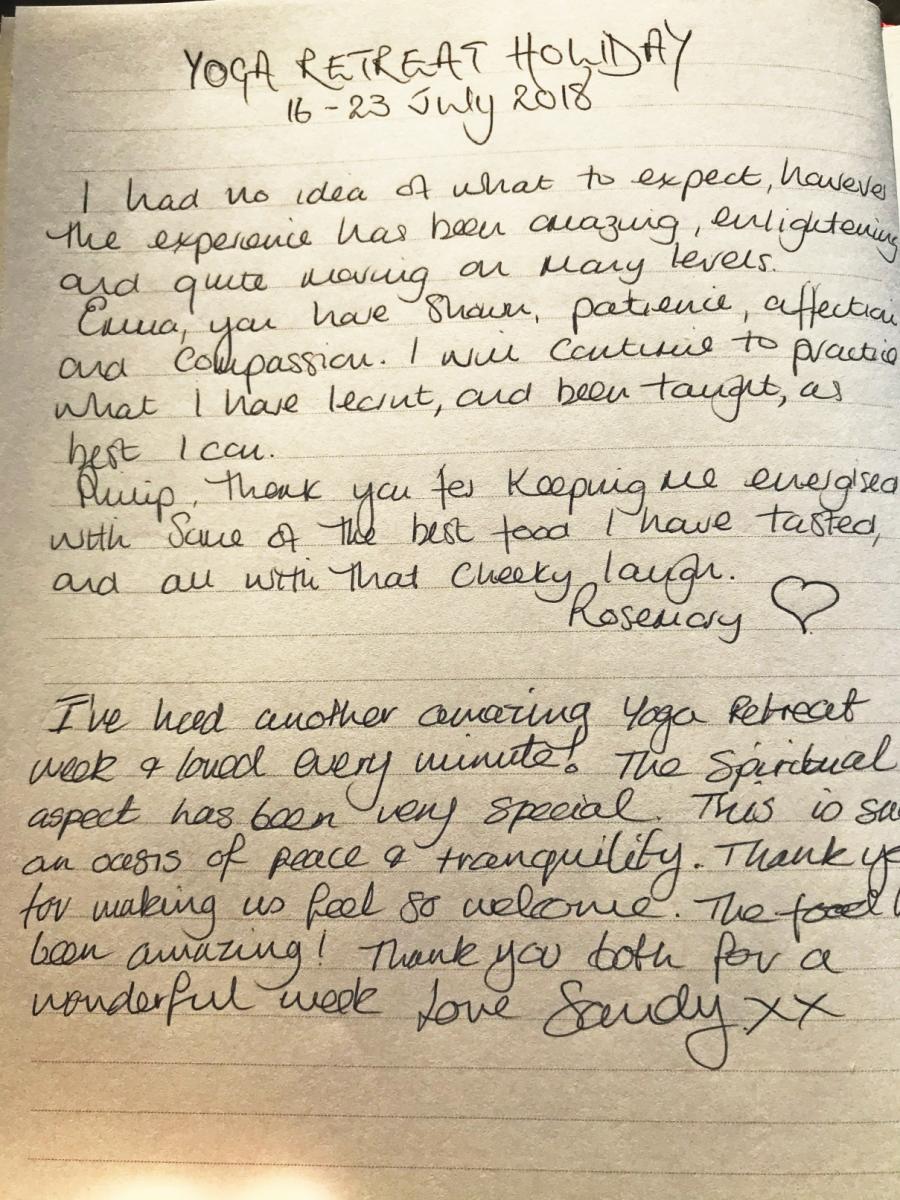 YOGA RETREAT HOLIDAY
16 - 23 July 2018
I had no idea of what to expect, however
the experience has been amazing, enlightening
and quite moving on many levels.
Emma, you have shown, patience, affection
and compassion. I will continue to practice
what I have learnt, and been taught, as
best I can.
Philip, thank you for keeping me energised
with some of the best food I have tasted,
and all with that cheeky laugh.
Rosemary
I've had another amazing Yoga Retreat
week & loved every minute! The Spiritual
aspect has been very special. This is
an oasis of peace & tranquility. Thank
for making us feel so welcome. The food
been amazing! Thank you both for a
wonderful week Love Sandy xx